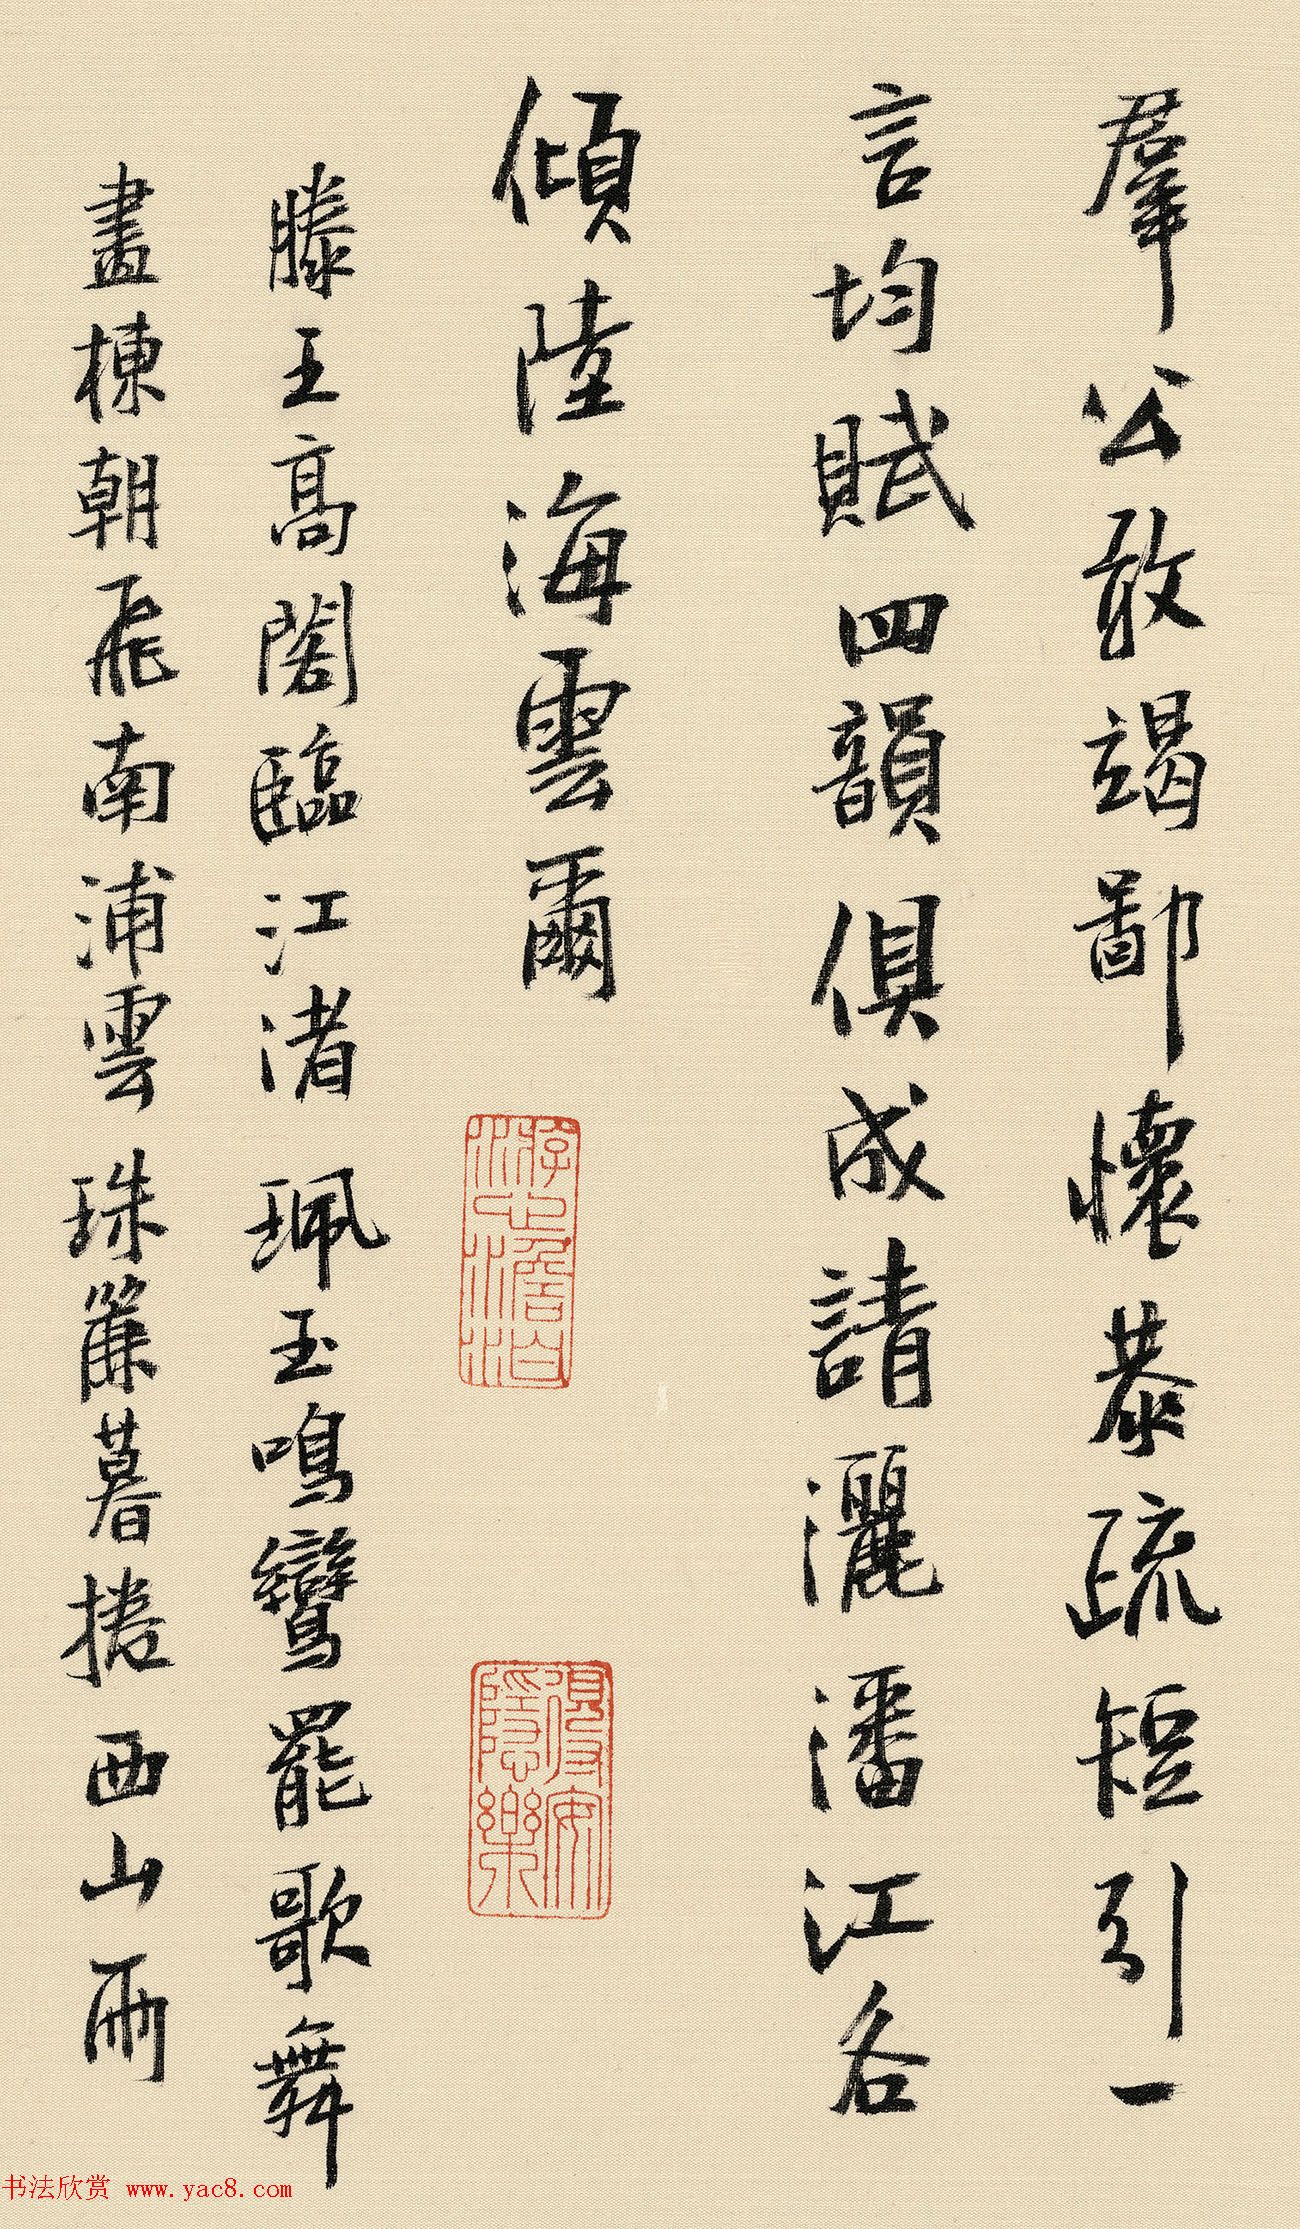 羣公敢竭鄙懷恭疏短引一
言均賦四韻俱成請灑潘江各
傾陸海雲爾
游心澹泊
得安隱樂
滕王高閣臨江渚珮玉鳴鸞罷歌舞
畫棟朝飛南浦雲珠簾暮捲西山雨
书法欣赏 www.yac8.com